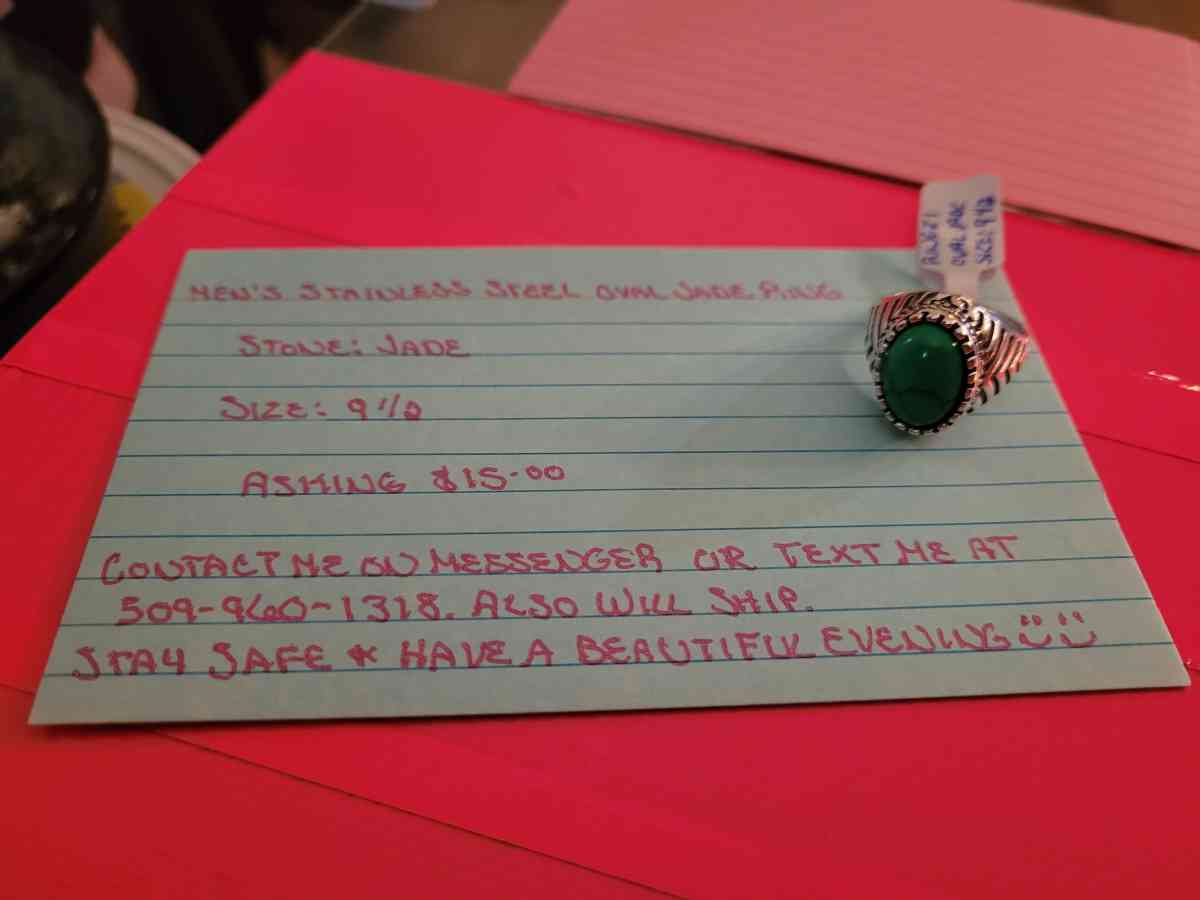 MEN'S STAINLESS STEEL OVAL JADE RING
STONE: JADE
SIZE: 9 1/2
ASKING $15.00
CONTACT ME ON MESSENGER OR TEXT ME AT
509-960-1318. ALSO WILL SHIP.
STAY SAFE & HAVE A BEAUTIFUL EVENING
OVAL